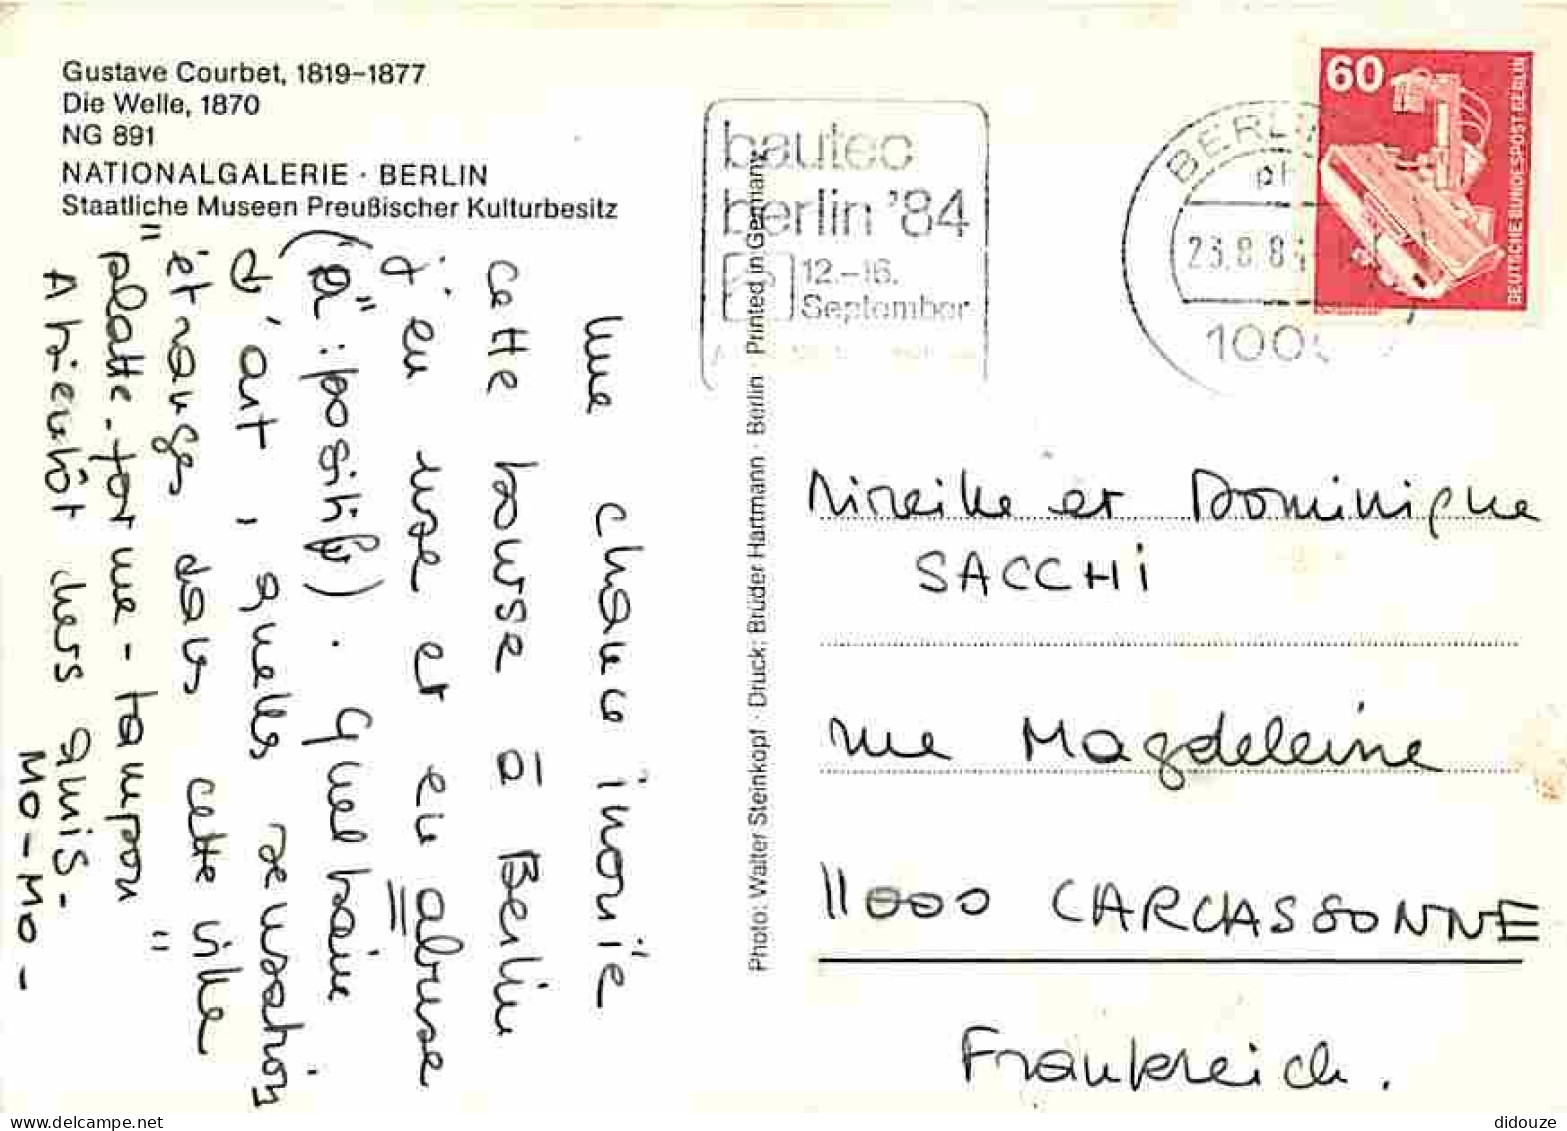 Gustave Courbet, 1819–1877
Die Welle, 1870
NG 891
NATIONALGALERIE · BERLIN
Staatliche Museen Preußischer Kulturbesitz
une chance inouïe
cette bourse à Berlin
j'en use et en abuse
("a": positif). Quel bain
d'art, quelles sensations
étranges dans cette ville
"platte-forme-tampon"
A bientôt chers amis-
MO-MO-
Photo: Walter Steinkopf · Druck: Brüder Hartmann · Berlin · Printed in Germany
bautec
berlin '84
12.–16.
September
BERLIN
100
60
DEUTSCHE BUNDESPOST BERLIN
Mireille et Dominique
SACCHI
rue Magdeleine
11000 CARCASSONNE
Frankreich.
www.delcampe.net
didouze